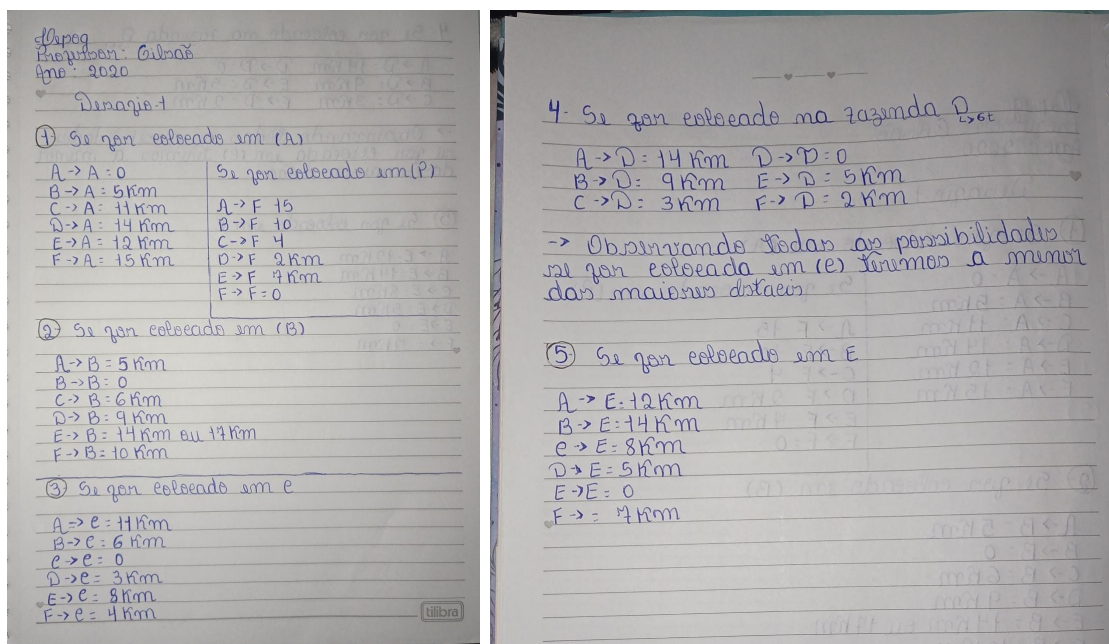 Professor: Gilsaõ
Ano: 2020
Desafio 1
① Se for colocado em (A)
A -> A = 0
B -> A = 5Km
C -> A = 11Km
D -> A = 14Km
E -> A = 12Km
F -> A = 15Km
Se for colocado em (F)
A -> F 15
B -> F 10
C -> F 4
D -> F 2Km
E -> F 7Km
F -> F = 0
② Se for colocado em (B)
A -> B = 5Km
B -> B: 0
C -> B: 6Km
D -> B: 9Km
E -> B: 14Km ou 17Km
F -> B: 10Km
③ Se for colocado em C
A -> C = 11Km
B -> C = 6Km
C -> C = 0
D -> C = 3Km
E -> C = 8Km
F -> C = 4Km
tilibra
4. Se for colocado na fazenda D
A -> D = 14Km D -> D = 0
B -> D = 9Km E -> D = 5Km
C -> D = 3Km F -> D = 2Km
-> Observando todas as possibilidades
se for colocada em (C) teremos a menor
das maiores
⑤ Se for colocado em E
A -> E = 12Km
B -> E = 14Km
C -> E = 8Km
D -> E = 5Km
E -> E = 0
F -> = 7Km